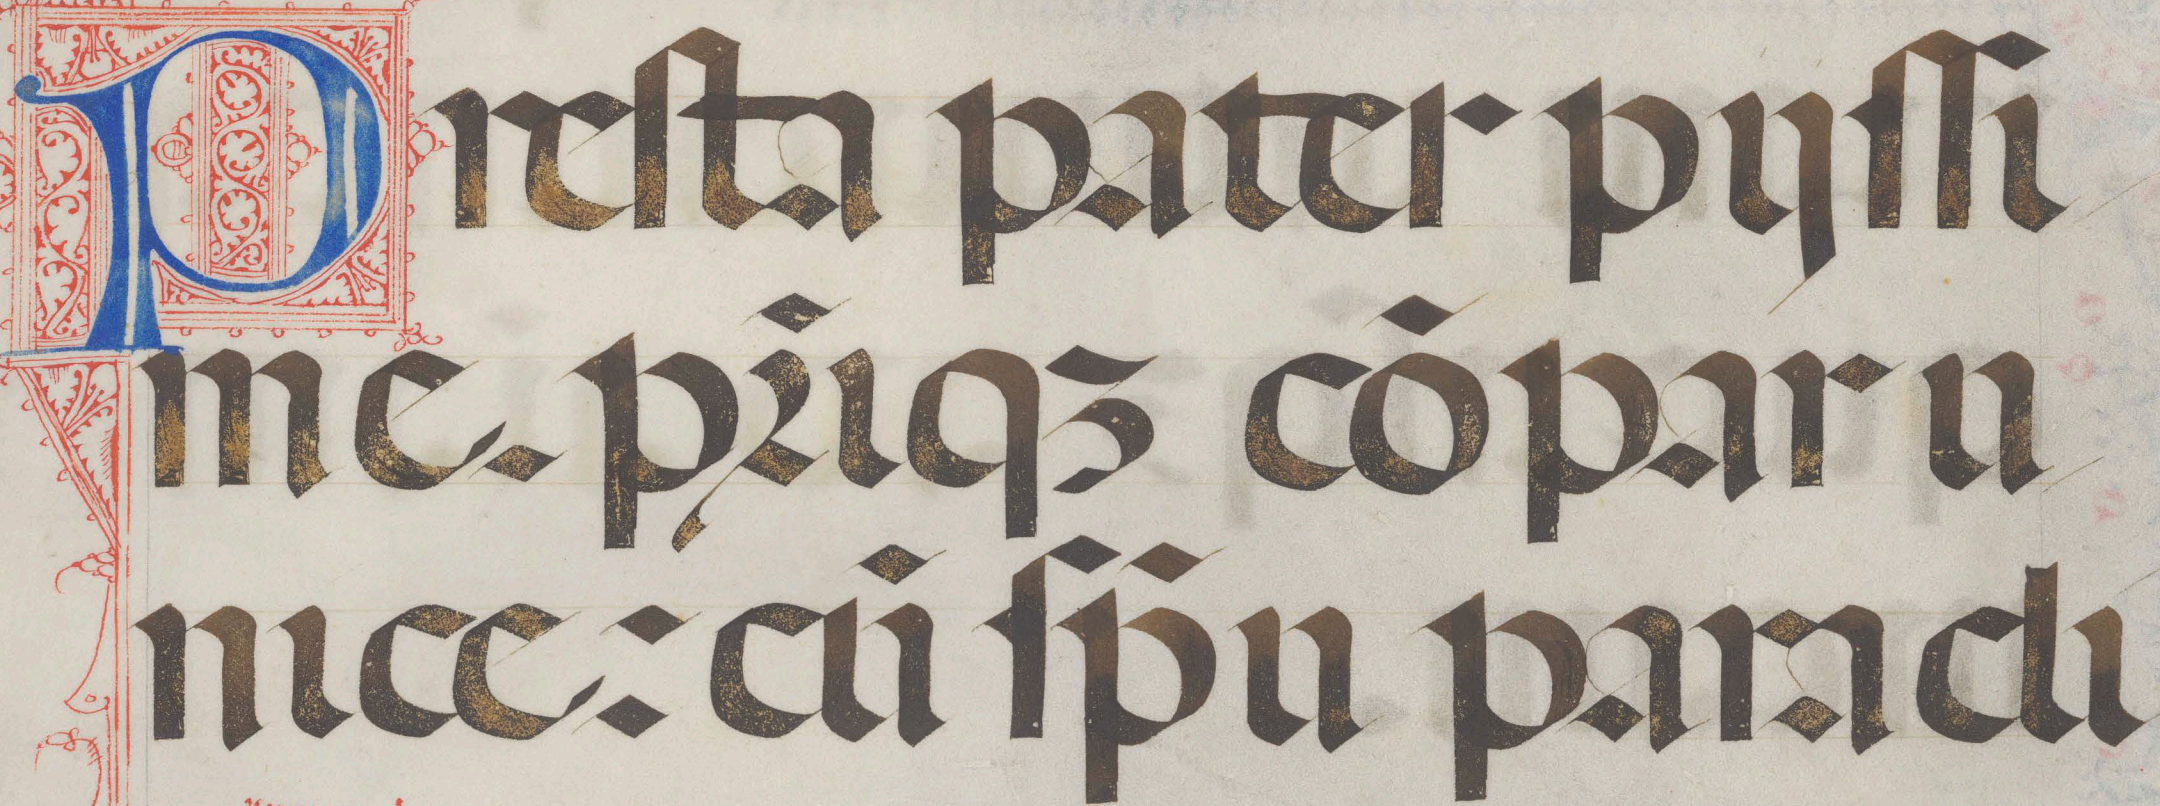 Presta pater pijssi
me. pr̃iqꝫ cõpar u
nice: cũ sp̃u paracli